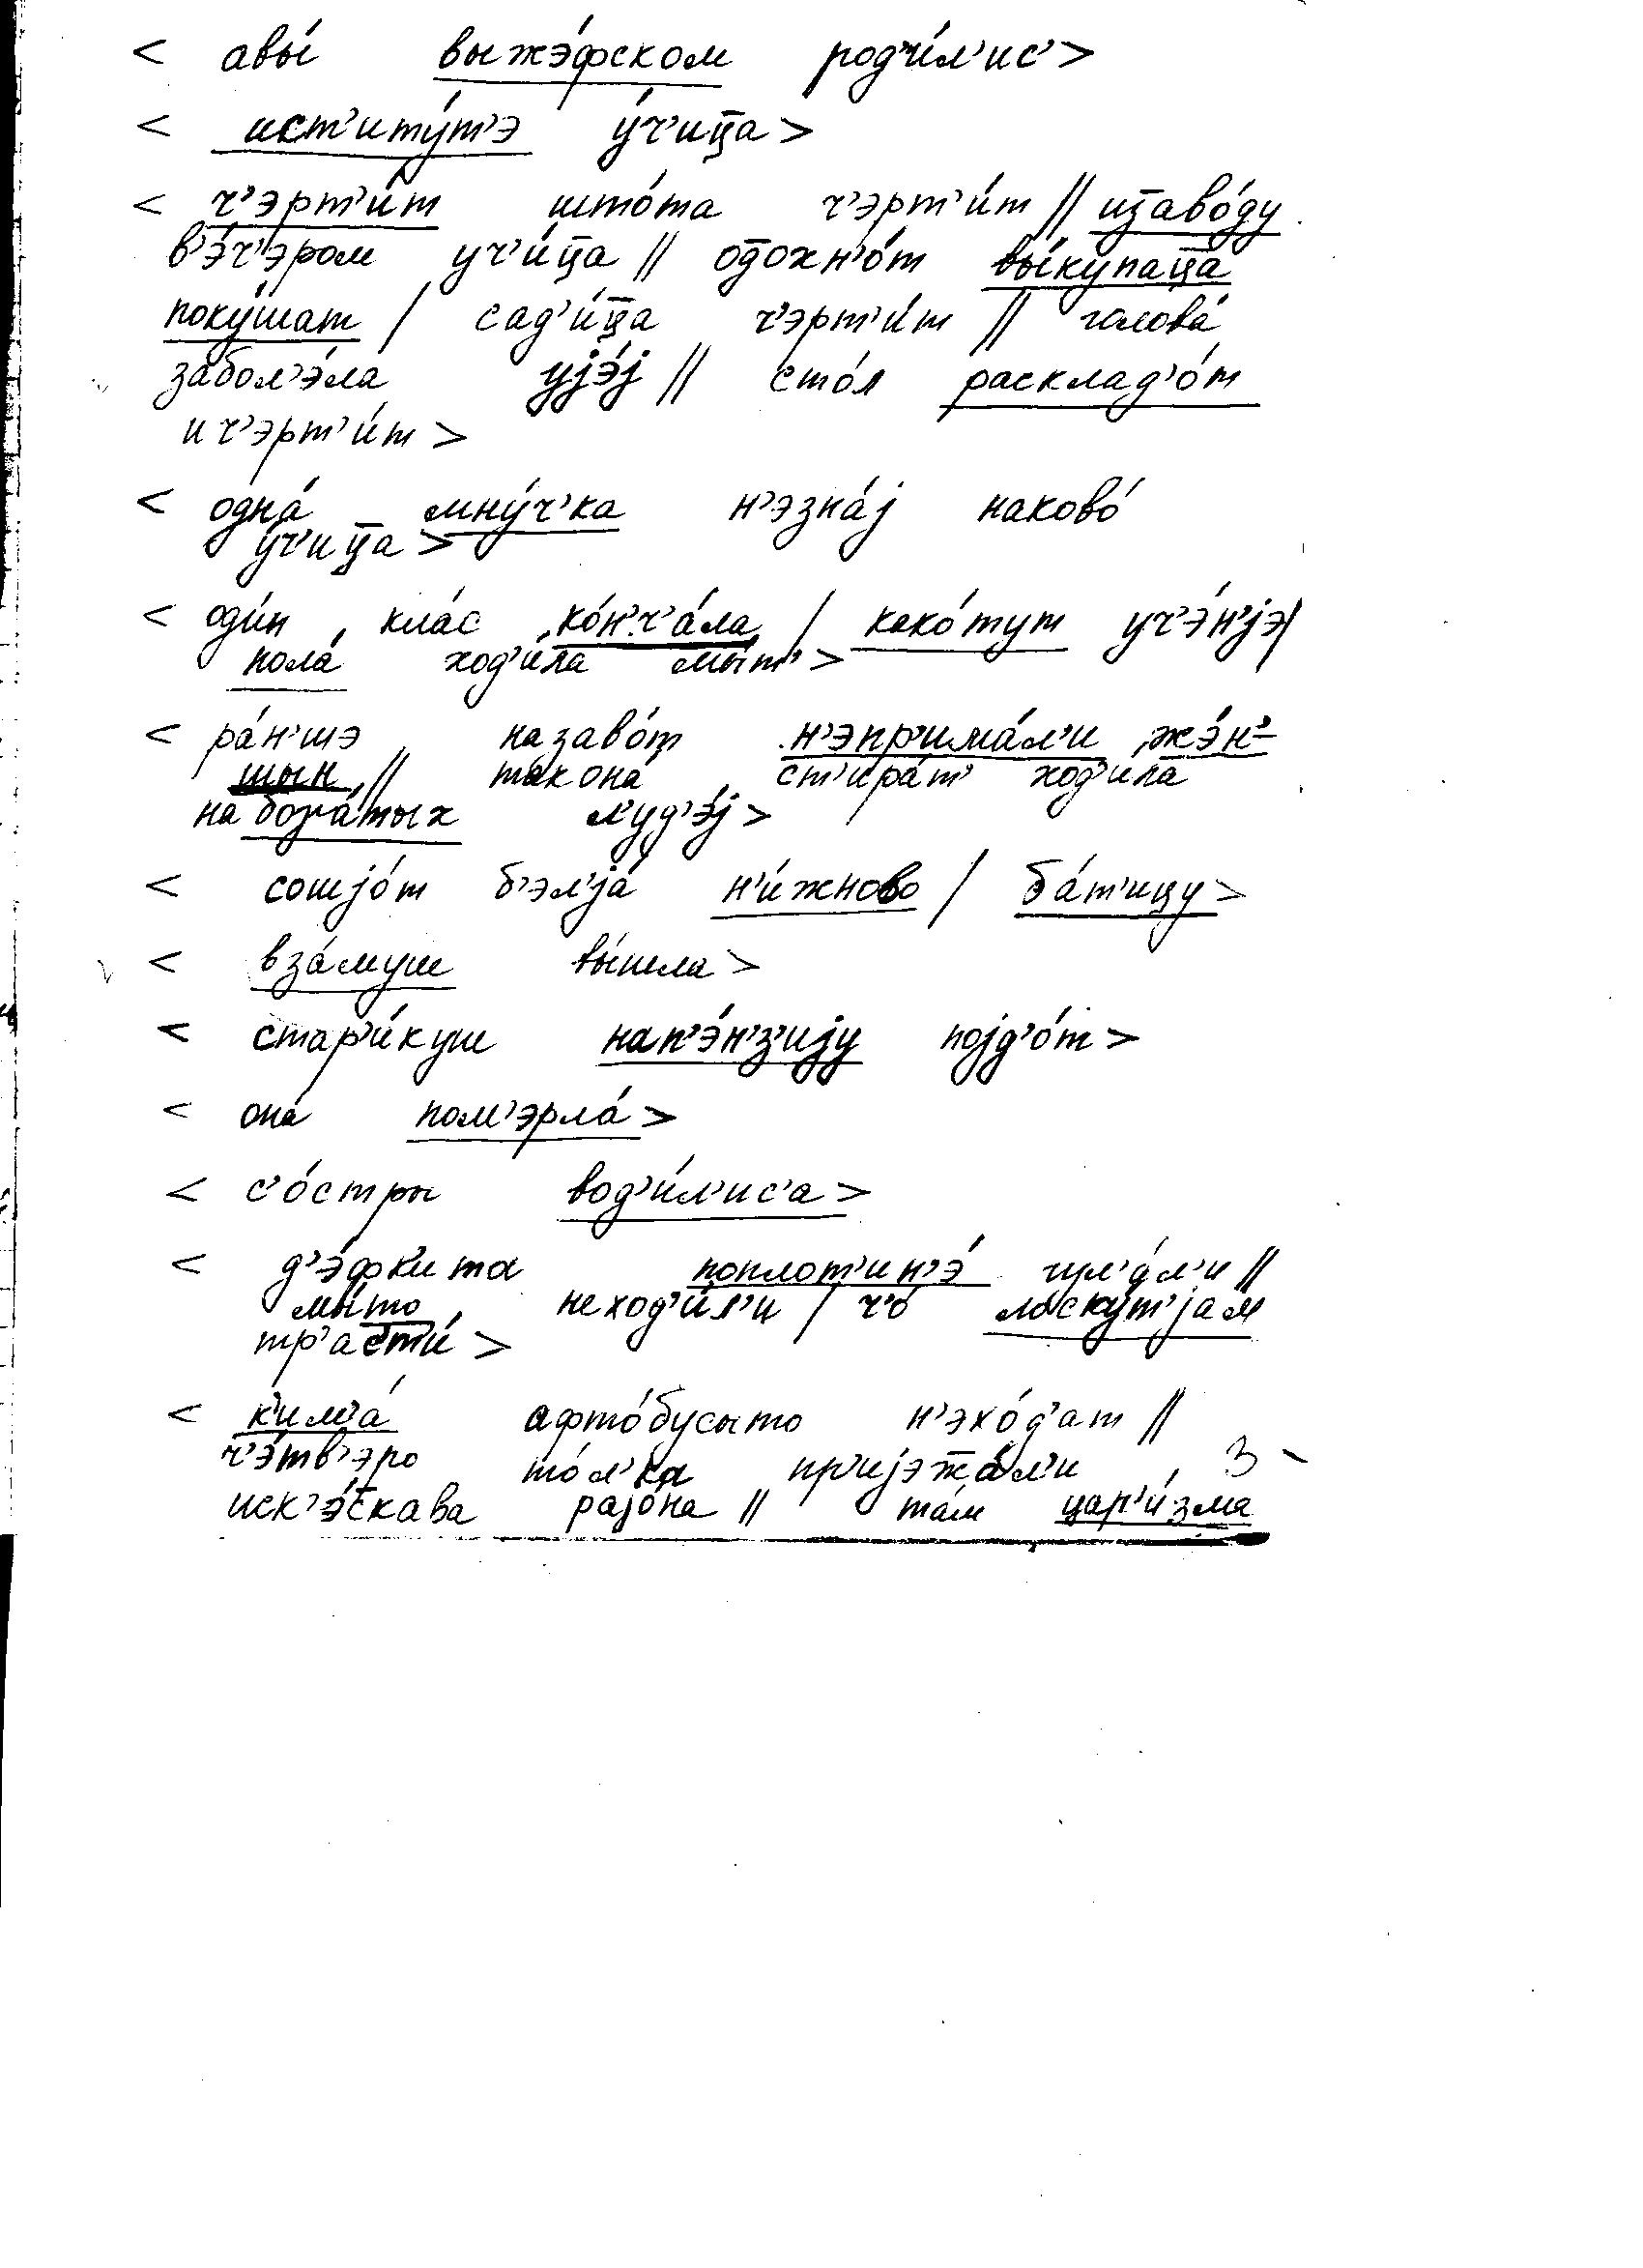 < авы́ выжэ́фском род'и́л'ис' >
< ист'иту́т'э у́ч'ица >
< ч'эрт'и́т што́та ч'эрт'и́т // изаво́ду
в'э́ч'эром уч'и́ца // одохн'о́т вы́купаца
поку́шат / сад'и́ца ч'эрт'и́т // голова́
забол'э́ла ујэ́ј // сто́л расклад'о́т
и ч'эрт'и́т >
< одна́ мну́ч'ка н'эзна́ј наково́
у́ч'ица >
< оди́н кла́с ко́н'ч'а́ла / како́тут уч'э́н'јэ /
пола́ ход'и́ла мы́т' >
< ра́н'шэ на заво́т н'эпр'има́л'и жэ́н'-
шын // так она́ ст'ира́т' ход'и́ла
на бога́тых л'уд'э́ј >
< сошјо́т б'эл'ја́ н'и́жново / ба́т'ицу >
< вза́муш вы́шла >
< стар'и́куш нап'э́н'з'ију појд'о́т >
< она́ пом'эрла́ >
< с'о́стры вод'и́л'ис'а >
< д'э́фки та поплот'ин'э́ гул'а́л'и //
мы́то неход'и́л'и / ч'о́ лоску́т'јам
тр'асти́ >
< к'им'а́ афто́бусыто н'эхо́д'ат //
ч'э́тв'эро то́л'ка пр'ијэжа́л'и З -
иск'э́скава рајо́на // та́м цар'и́зма